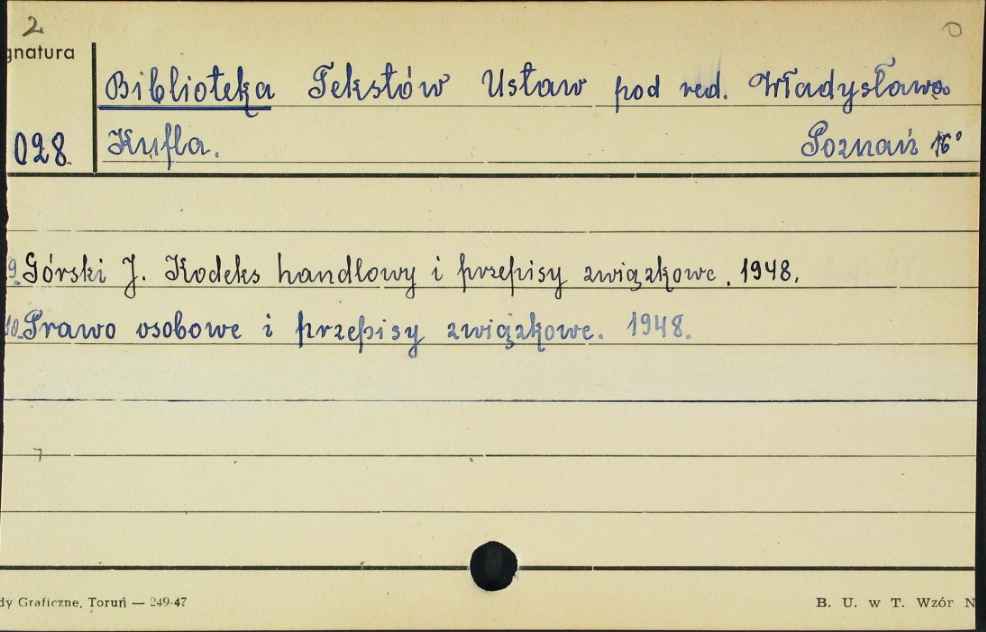 2
gnatura
Biblioteka Tekstów Ustaw pod red. Władysława
028 Kufla. Poznań 16°
9. Górski J. Kodeks handlowy i przepisy związkowe. 1948.
10. Prawo osobowe i przepisy związkowe. 1948.
dy Graficzne, Toruń — 249-47 B. U. w T. Wzór N